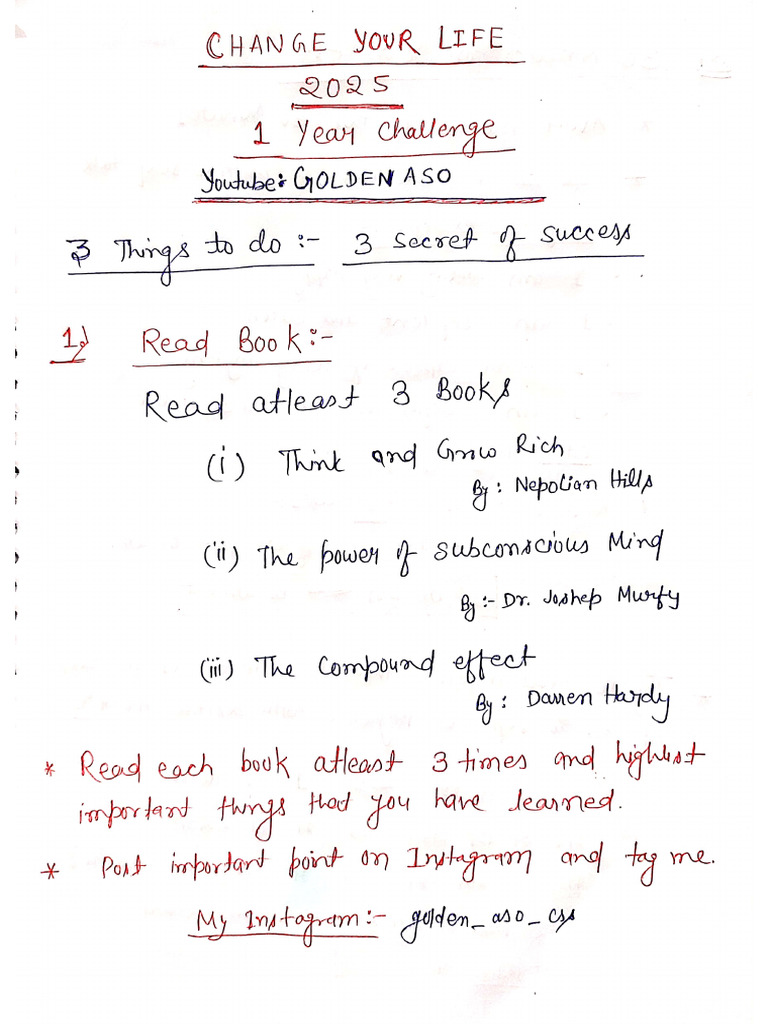 CHANGE YOUR LIFE
2025
1 Year Challenge
Youtube: GOLDEN ASO
3 Things to do :- 3 secret of success
1) Read Book:-
Read atleast 3 Books
(i) Think and Grow Rich
By: Nepolian Hills
(ii) The power of subconscious Mind
By :- Dr. Joshep Murfy
(iii) The Compound effect
By : Darren Hardy
* Read each book atleast 3 times and highlist
important things that you have learned.
* Post important point on Instagram and tag me.
My Instagram:- golden_aso_css